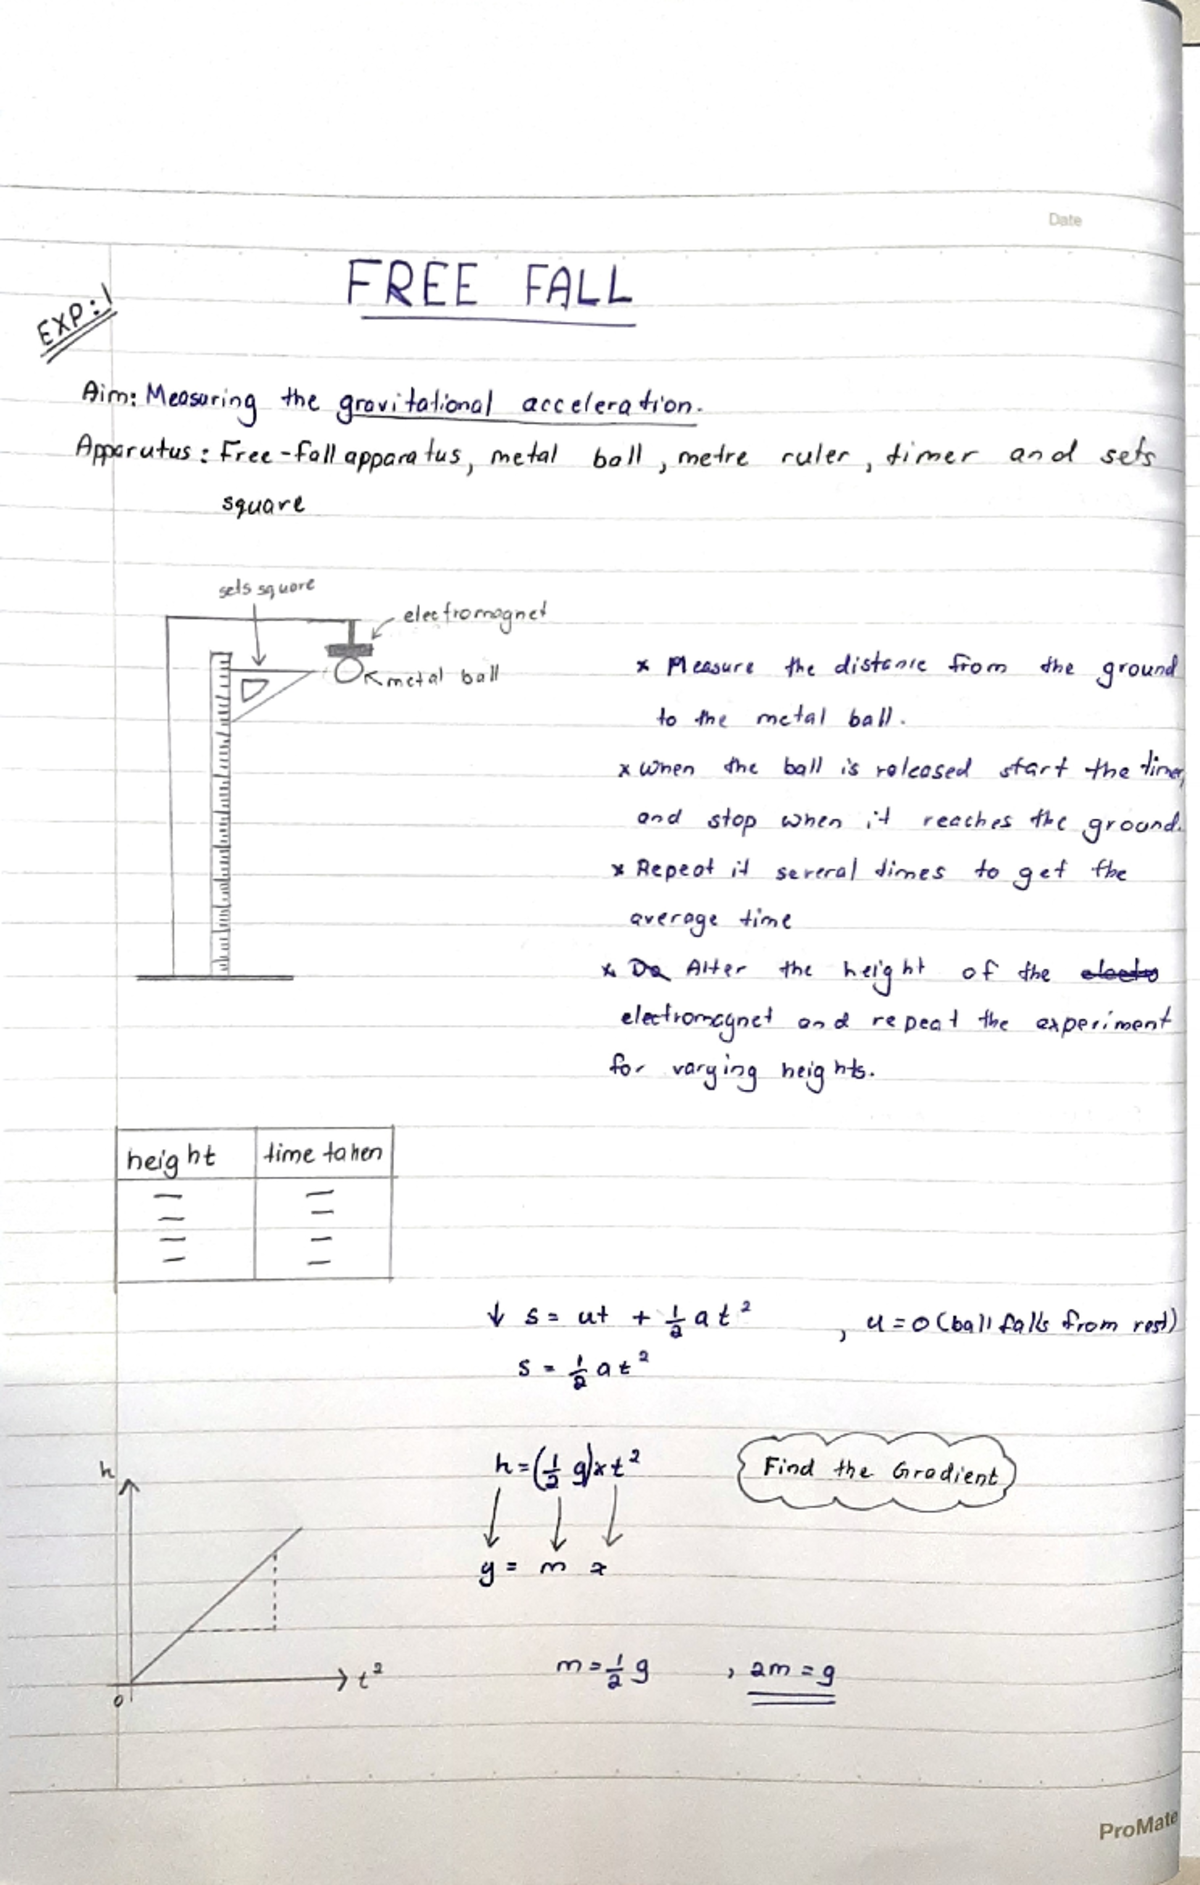 Date
FREE FALL
EXP:1
Aim: Measuring the gravitational acceleration.
Apparutus: Free-fall apparatus, metal ball, metre ruler, timer and sets
square
sets square
electromagnet
metal ball
x Measure the distance from the ground
to the metal ball.
x When the ball is released start the timer,
and stop when it reaches the ground.
x Repeat it several times to get the
average time
x Alter the height of the
electromagnet and repeat the experiment
for varying heights.
height time taken
↓ s = ut + 1/2 at², u = 0 (ball falls from rest)
s = 1/2 at²
h
h = (1/2 g) x t²
Find the Gradient
y = m x
m = 1/2 g, 2m = g
t²
0
ProMate